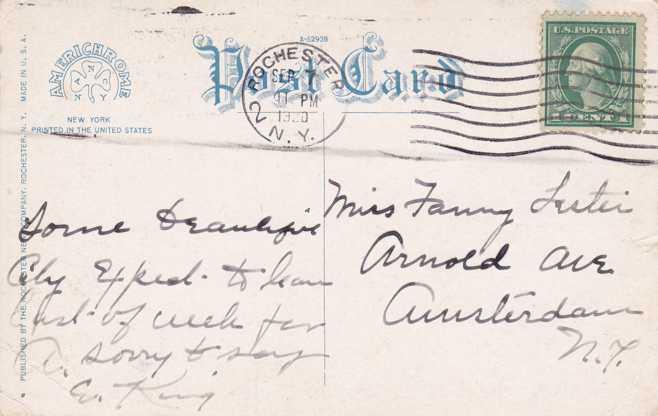 A-52938
AMERICHROME
N Y
NEW YORK
PRINTED IN THE UNITED STATES
Post Card
ROCHESTER
SEP 7
11 PM
1920
N.Y.
2
U.S. POSTAGE
1 CENT 1
PUBLISHED BY THE ROCHESTER NEWS COMPANY, ROCHESTER, N. Y. MADE IN U. S. A.
Some Beautiful
City Exped. to leave
last of week for
A. sorry to say
E. King
Miss Fanny Lester
Arnold Ave.
Amsterdam
N.Y.